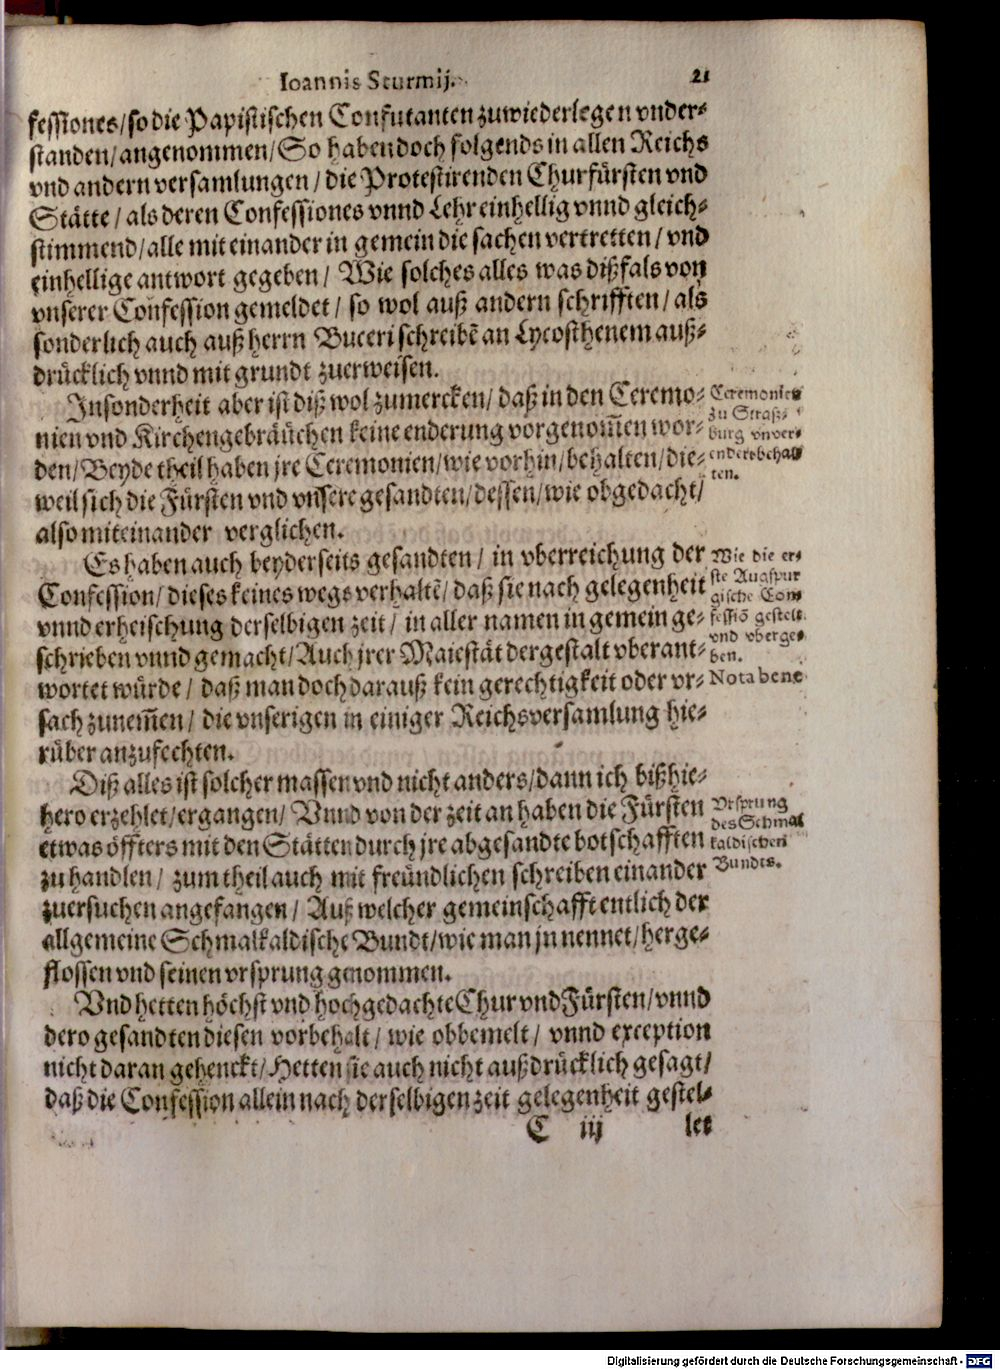 Ioannis Sturmij. 21
fessiones/so die Papistischen Confutanten zuwiederlegen vnder-
standen/angenommen/So haben doch folgends in allen Reichs
vnd andern versamlungen/die Protestirenden Churfürsten vnd
Stätte/als deren Confessiones vnnd Lehr einhellig vnnd gleich-
stimmend/alle mit einander in gemein die sachen vertretten/vnd
einhellige antwort gegeben/Wie solches alles was dißfals von
vnserer Confession gemeldet/so wol auß andern schrifften/als
sonderlich auch auß herrn Buceri schreibẽ an Lycosthenem auß-
drücklich vnnd mit grundt zuerweisen.
Insonderheit aber ist diß wol zumercken/daß in den Ceremo-
nien vnd Kirchengebräuchen keine enderung vorgenom̃en wor-
den/Beyde theil haben jre Ceremonien/wie vorhin/behalten/die-
weil sich die Fürsten vnd vnsere gesandten/dessen/wie obgedacht/
also miteinander verglichen.
Ceremonien
zu Straß-
burg vnver-
endert behal
ten.
Es haben auch beyderseits gesandten/in vberreichung der
Confession/dieses keines wegs verhaltẽ/daß sie nach gelegenheit
vnnd erheischung derselbigen zeit/in aller namen in gemein ge-
schrieben vnnd gemacht/Auch jrer Maiestät dergestalt vberant-
wortet würde/daß man doch darauß kein gerechtigkeit oder vr-
sach zunem̃en/die vnserigen in einiger Reichsversamlung hie-
rüber anzufechten.
Wie die er-
ste Augspur
gische Con
fessiõ gestelt
vnd vberge-
ben.
Nota bene
Diß alles ist solcher massen vnd nicht anders/dann ich bißhie-
hero erzehlet/ergangen/Vnnd von der zeit an haben die Fürsten
etwas öffters mit den Stätten durch jre abgesandte botschafften
zu handlen/zum theil auch mit freündlichen schreiben einander
zuersuchen angefangen/Auß welcher gemeinschafft entlich der
allgemeine Schmalkaldische Bundt/wie man jn nennet/herge-
flossen vnd seinen vrsprung genommen.
Vrsprung
des Schmal
kaldischen
Bundts.
Vnd hetten höchst vnd hochgedachte Chur vnd Fürsten/vnnd
dero gesandten diesen vorbehalt/wie obbemelt/vnnd exception
nicht daran gehenckt/Hetten sie auch nicht außdrücklich gesagt/
daß die Confession allein nach derselbigen zeit gelegenheit gestel-
C iij let
Digitalisierung gefördert durch die Deutsche Forschungsgemeinschaft - DFG